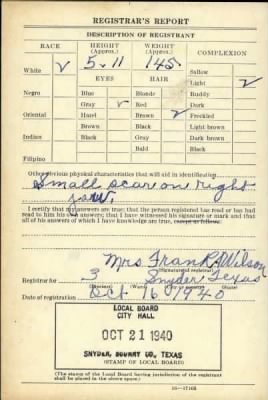 REGISTRAR'S REPORT
DESCRIPTION OF REGISTRANT
RACE HEIGHT (Approx.) WEIGHT (Approx.) COMPLEXION
5-11 145
White ✓ Sallow
EYES HAIR Light ✓
Negro Blue Blonde Ruddy
Gray ✓ Red Dark
Oriental Hazel Brown ✓ Freckled
Brown Black Light brown
Indian Black Gray Dark brown
Bald Black
Filipino
Other obvious physical characteristics that will aid in identification
Small scar on right
jaw.
I certify that my answers are true; that the person registered has read or has had
read to him his own answers; that I have witnessed his signature or mark and that
all of his answers of which I have knowledge are true, except as follows:
Mrs. Frank Wilson
(Signature of registrar)
Registrar for 3 Snyder Texas
Date of registration Oct 16, 1940
LOCAL BOARD
CITY HALL
OCT 21 1940
SNYDER, SCURRY CO., TEXAS
(STAMP OF LOCAL BOARD)
(The stamp of the Local Board having jurisdiction of the registrant
shall be placed in the above space.)